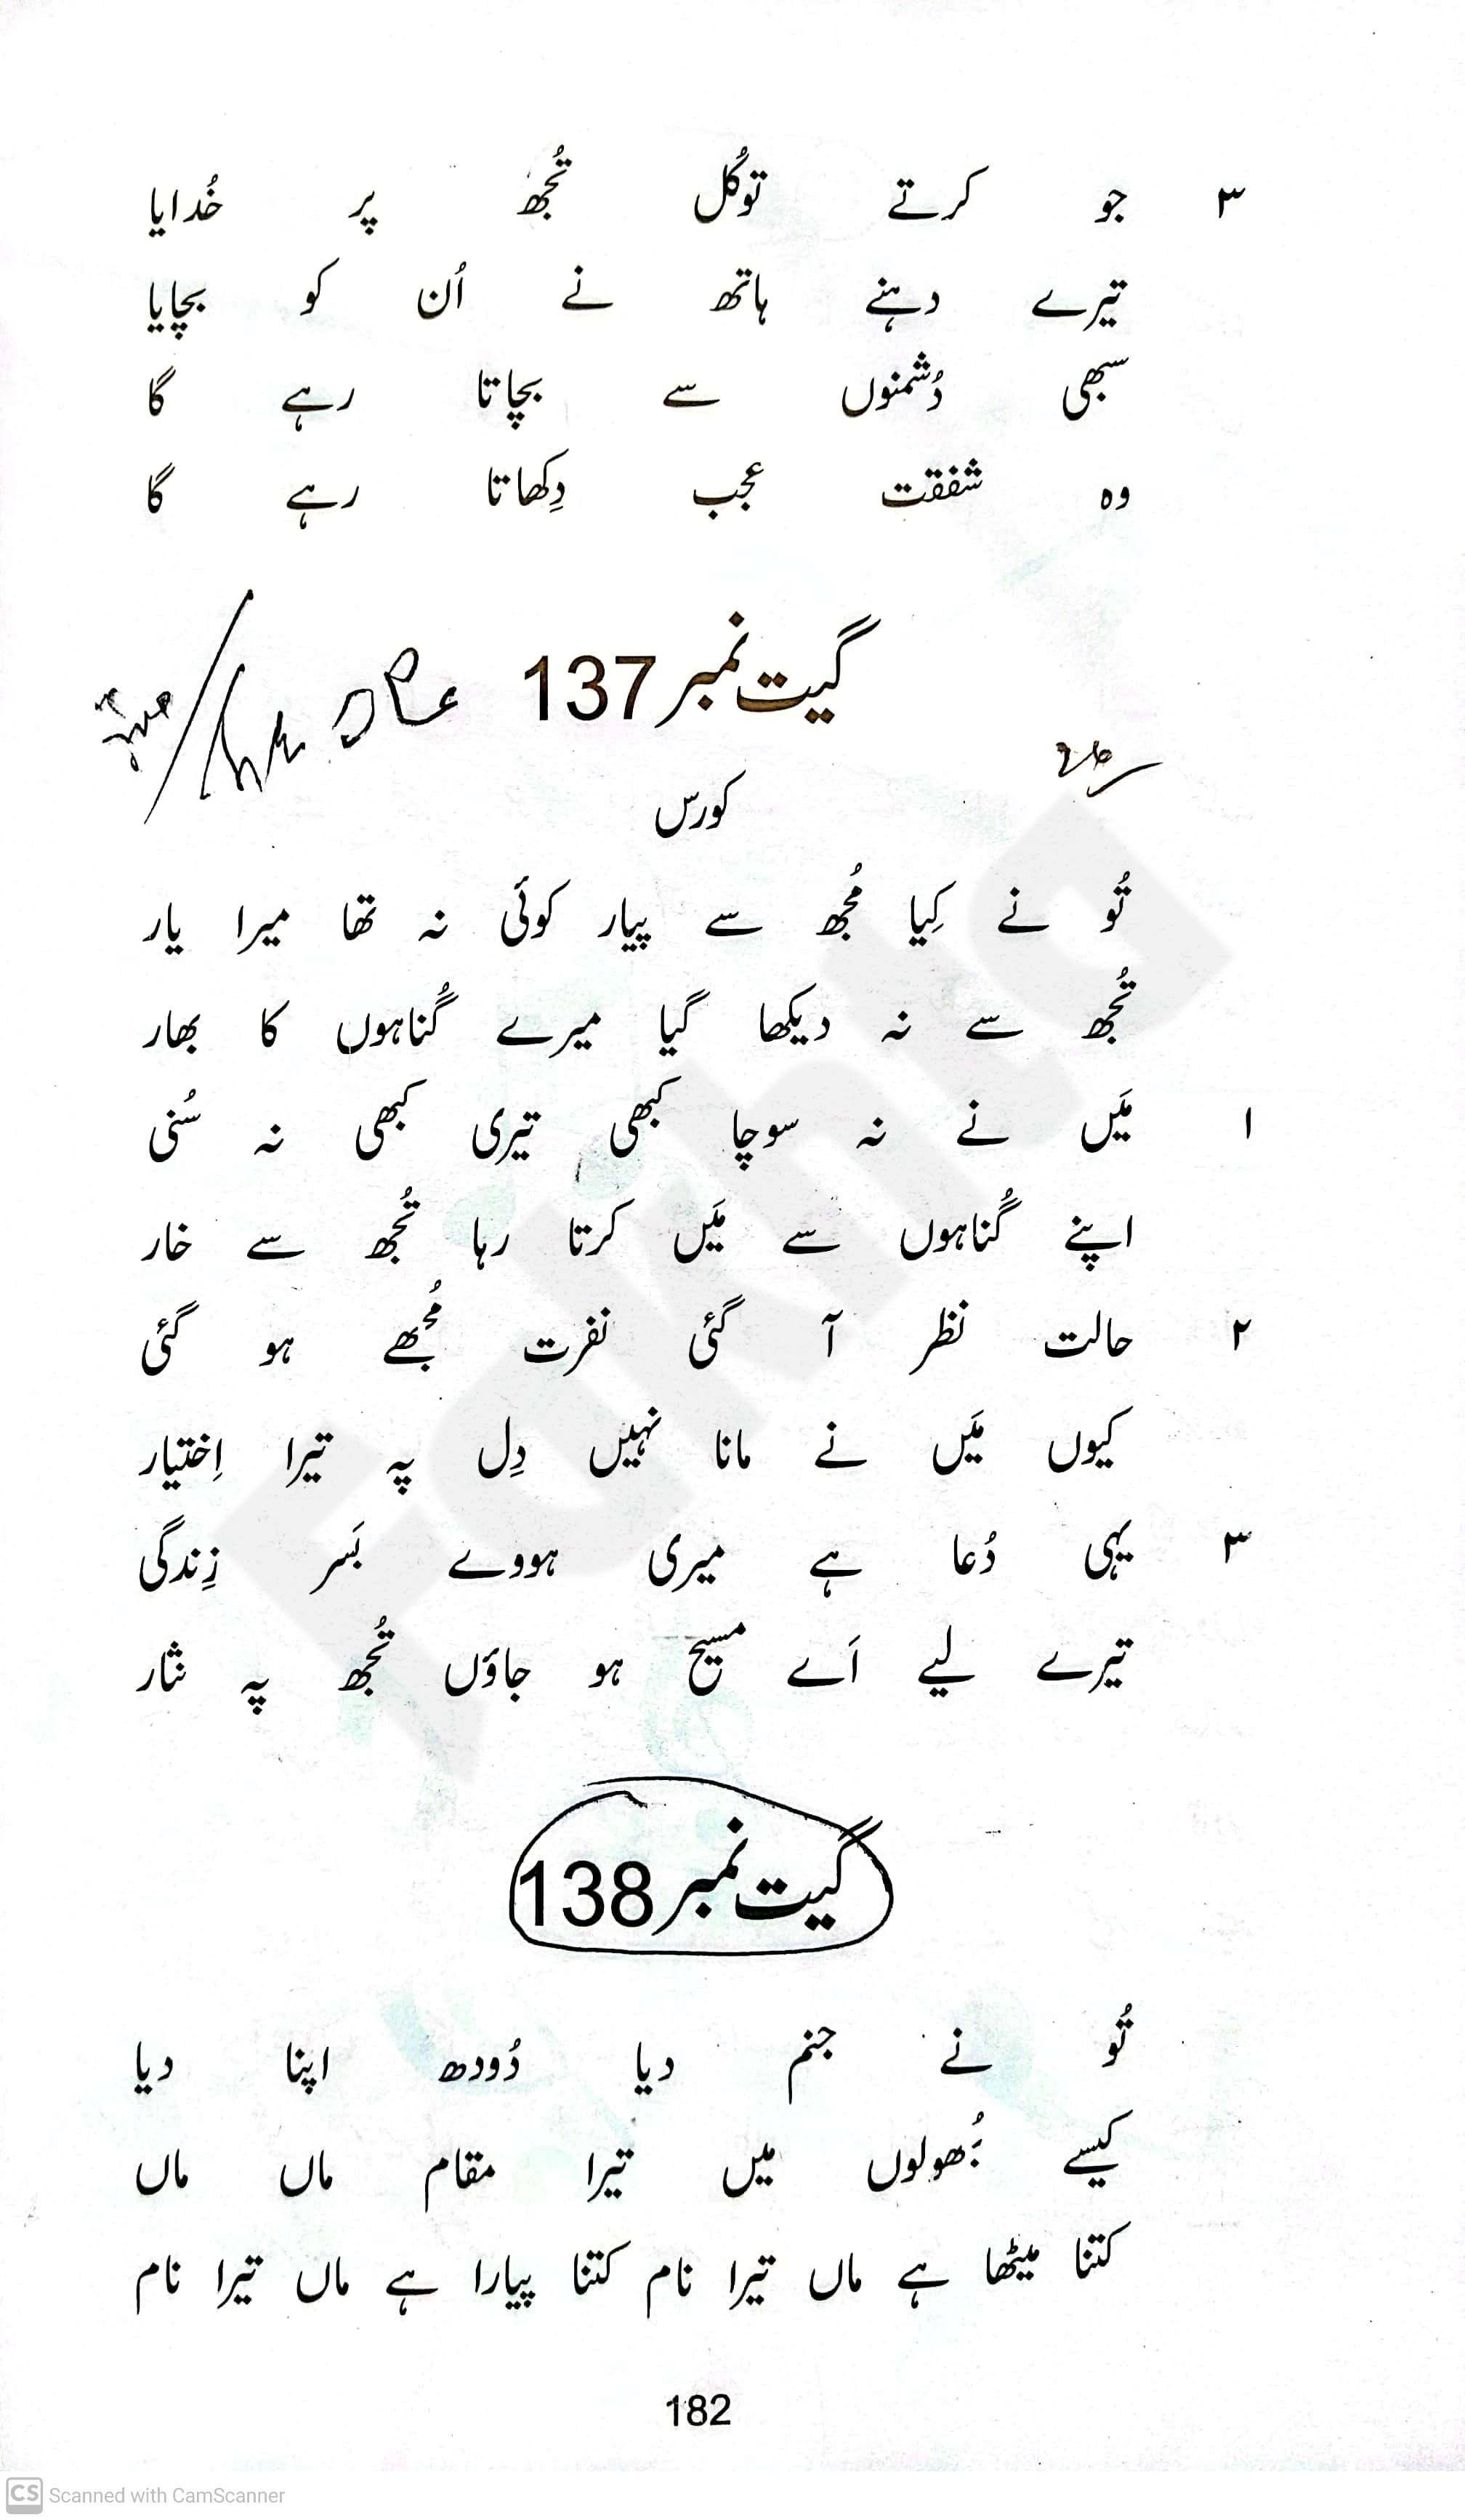 ۳ جو کرتے توکُل تُجھ پر خُدایا
تیرے دہنے ہاتھ نے اُن کو بچایا
سبھی دُشمنوں سے بچاتا رہے گا
وہ شفقت عجب دِکھاتا رہے گا
گیت نمبر 137
کورس
تُو نے کِیا مُجھ سے پیار کوئی نہ تھا میرا یار
تُجھ سے نہ دیکھا گیا میرے گُناہوں کا بھار
۱ مَیں نے نہ سوچا کبھی تیری کبھی نہ سُنی
اپنے گُناہوں سے مَیں کرتا رہا تُجھ سے خار
۲ حالت نظر آ گئی نفرت مُجھے ہو گئی
کیوں مَیں نے مانا نہیں دِل پہ تیرا اِختیار
۳ یہی دُعا ہے میری ہووے بَسر زِندگی
تیرے لیے اَے مسیح ہو جاؤں تُجھ پہ نثار
گیت نمبر 138
تُو نے جنم دیا دُودھ اپنا دیا
کیسے بُھولوں میں تیرا مقام ماں ماں
کتنا میٹھا ہے ماں تیرا نام کتنا پیارا ہے ماں تیرا نام
182
Fakhta
CS Scanned with CamScanner